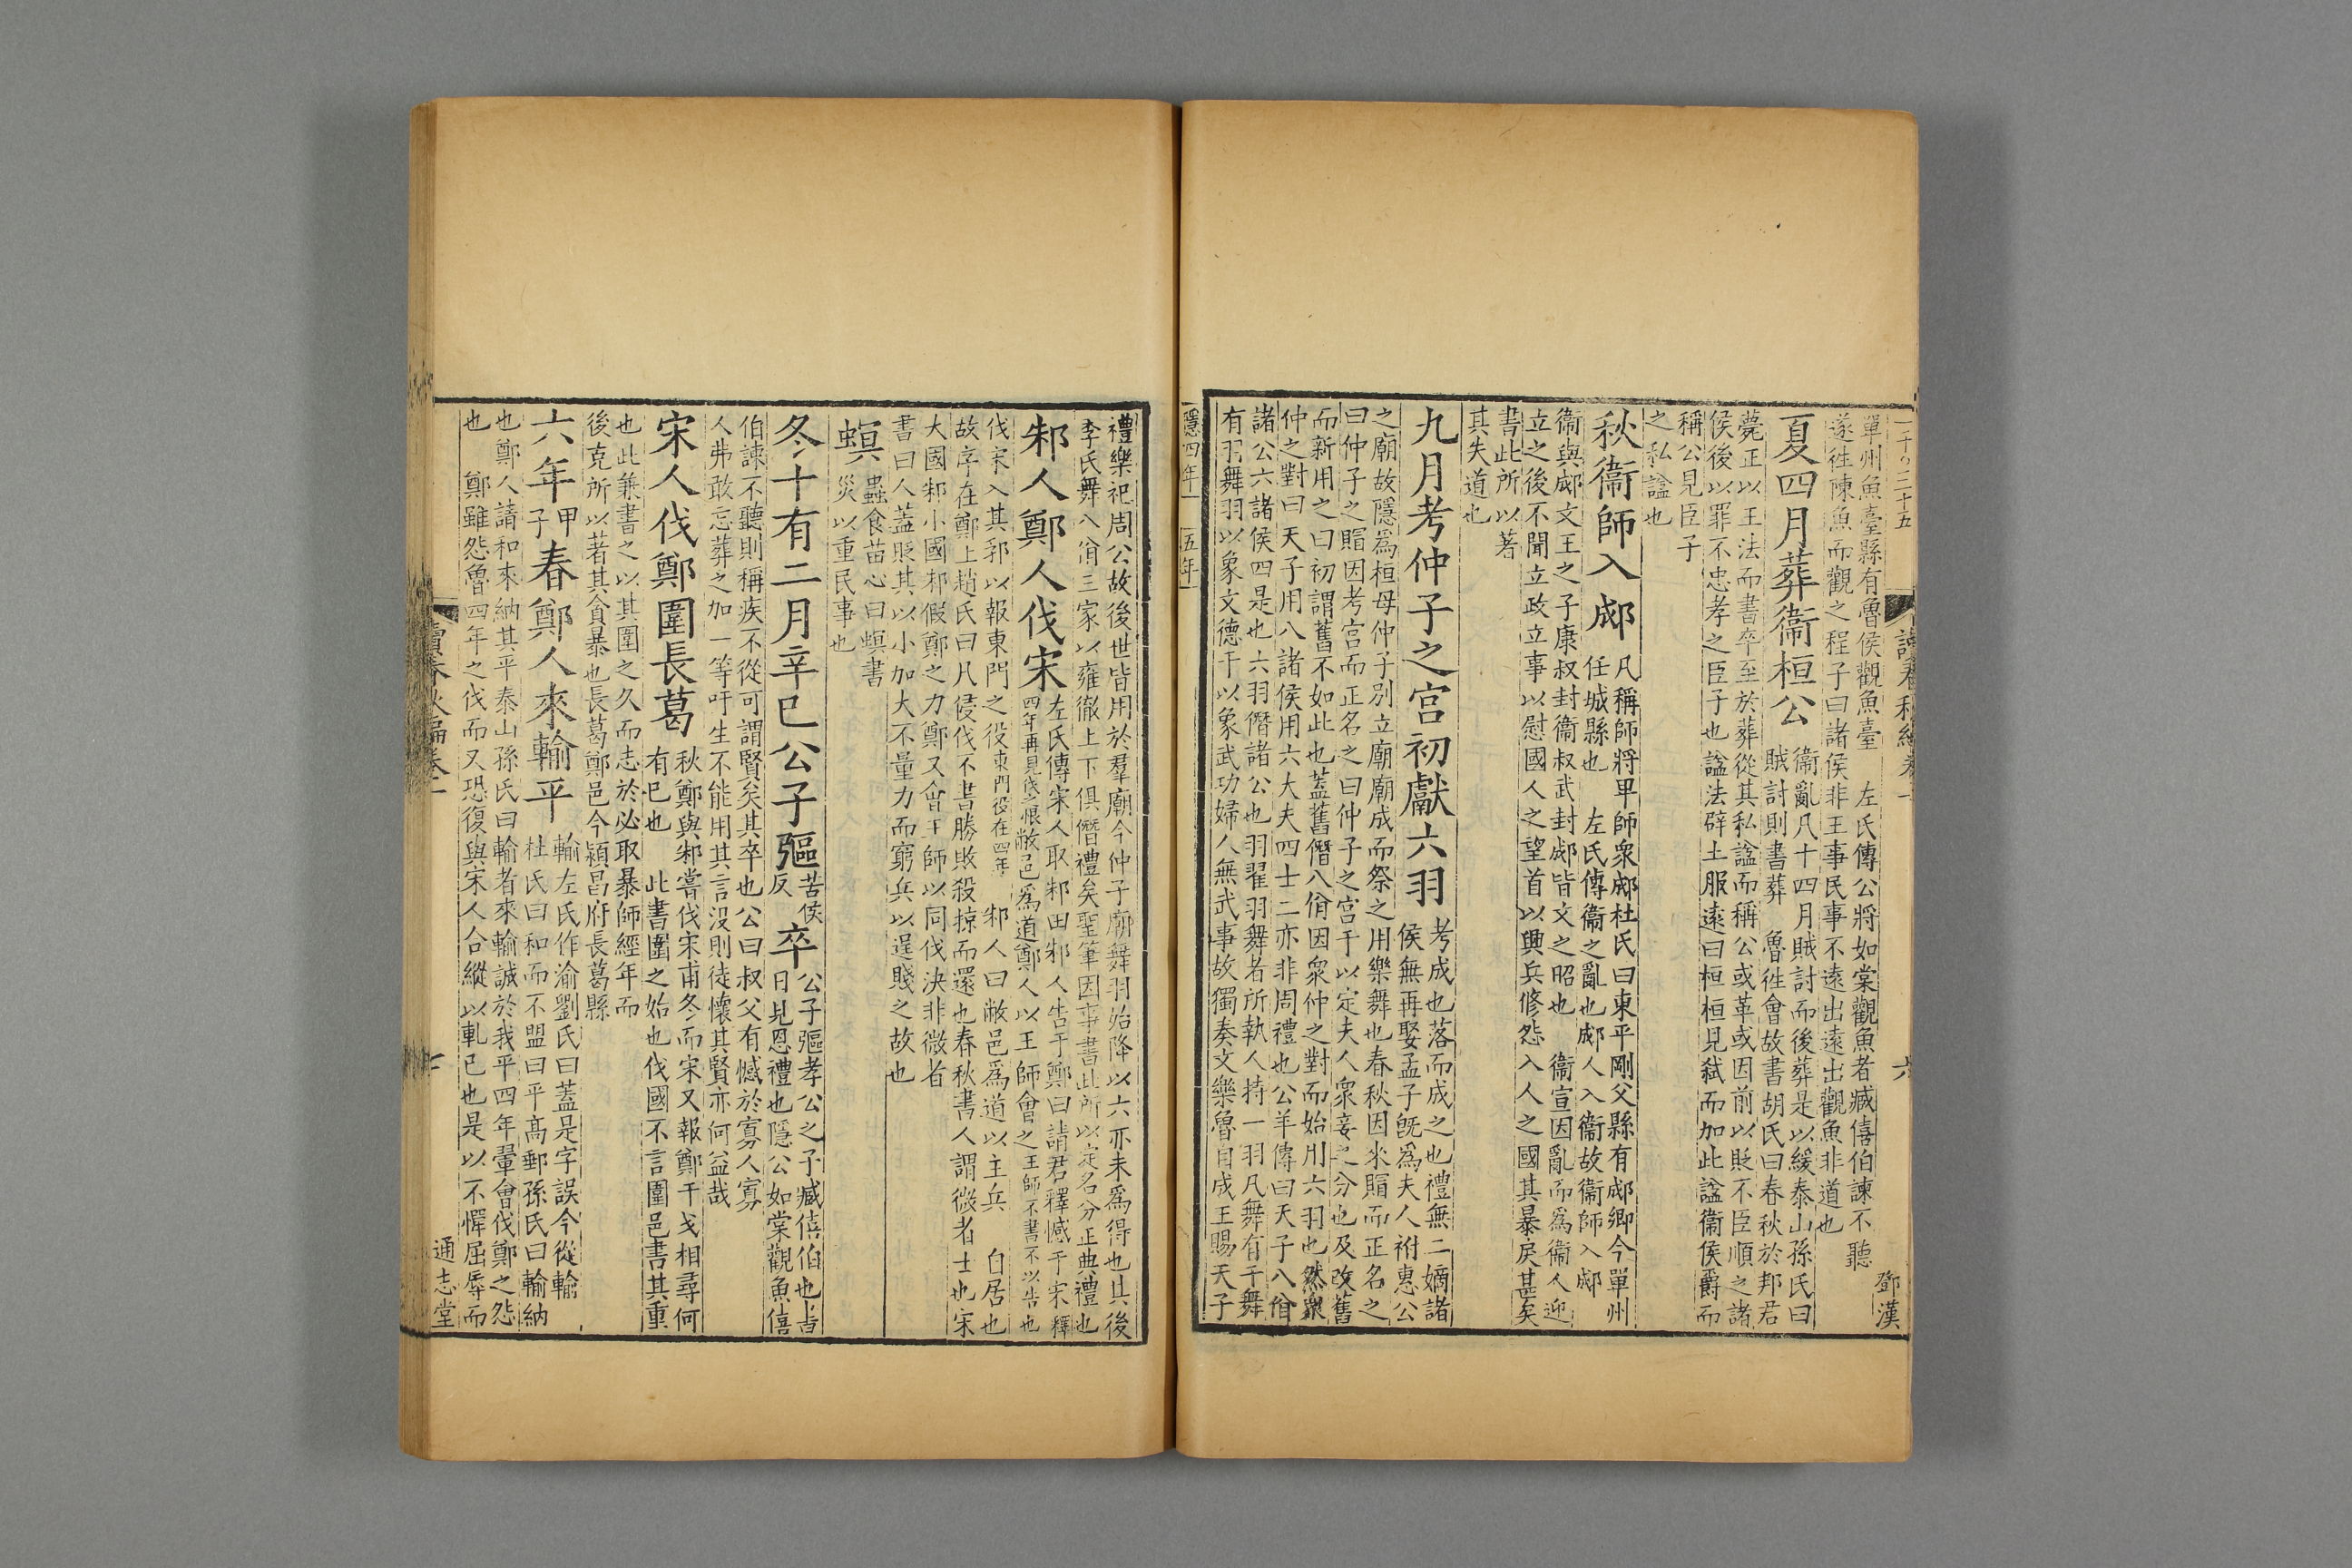 單州魚臺縣有魯侯觀魚臺　左氏傳公將如棠觀魚者臧僖伯諫不聽
遂徃陳魚而觀之程子曰諸侯非王事民事不遠出遠出觀魚非道也
夏四月葬衞桓公
衞亂凡十四月賊討而後葬是以緩泰山孫氏曰
賊討則書葬　魯徃會故書胡氏曰春秋於邦君
薨正以王法而書卒至於葬從其私諡而稱公或革或因前以貶不臣順之諸
侯後以罪不忠孝之臣子也　諡法辟土服遠曰桓桓見弑而加此諡衞侯爵而
稱公見臣子
之私諡也
秋衞師入郕
凡稱師將卑師衆郕杜氏曰東平剛父縣有郕鄉今單州
任城縣也　左氏傳衞之亂也郕人入衞故衞師入郕
衞與郕文王之子康叔封衞叔武封郕皆文之昭也　衞宣因亂而爲衞人迎
立之後不聞立政立事以慰國人之望首以興兵修怨入人之國其暴戾甚矣
書此所以著
其失道也
九月考仲子之宮初獻六羽
考成也落而成之也禮無二嫡諸
侯無再娶孟子旣爲夫人祔惠公
之廟故隱爲桓母仲子別立廟廟成而祭之用樂舞也春秋因來賵而正名之
曰仲子之賵因考宮而正名之曰仲子之宮于以定夫人衆妾之分也及改舊
而新用之曰初謂舊不如此也蓋舊僭八佾因衆仲之對而始用六羽也然衆
仲之對曰天子用八諸侯用六大夫四士二亦非周禮也公羊傳曰天子八佾
諸公六諸侯四是也六羽僭諸公也羽翟羽舞者所執人持一羽凡舞有干舞
有羽舞羽以象文德干以象武功婦人無武事故獨奏文樂魯自成王賜天子
隱四年　五年
六
鄧漢
禮樂祀周公故後世皆用於羣廟今仲子廟舞羽始降以六亦未爲得也其後
季氏舞八佾三家以雍徹上下俱僭禮矣聖筆因事書此所以定名分正典禮也
邾人鄭人伐宋
左氏傳宋人取邾田邾人告于鄭曰請君釋憾于宋釋
四年再見伐之恨敝邑爲道鄭人以王師會之王師不書不以告也
伐宋入其郛以報東門之役東門役在四年　邾人曰敝邑爲道以主兵　自居也
故序在鄭上趙氏曰凡侵伐不書勝敗殺掠而還也春秋書人謂微者士也宋
大國邾小國邾假鄭之力鄭又會王師以同伐決非微者
書曰人蓋貶其以小加大不量力而窮兵以逞賤之故也
螟
蟲食苗心曰螟書
災以重民事也
冬十有二月辛巳公子彄苦侯反卒
公子彄孝公之子臧僖伯也
日見恩禮也隱公如棠觀魚僖
伯諫不聽則稱疾不從可謂賢矣其卒也公曰叔父有憾於寡人寡
人弗敢忘葬之加一等吁生不能用其言沒則徒懷其賢亦何益哉
宋人伐鄭圍長葛
秋鄭與邾嘗伐宋甫冬而宋又報鄭干戈相尋何
有已也　此書圍之始也伐國不言圍邑書其重
也此兼書之以其圍之久而志於必取暴師經年而
後克所以著其貪暴也長葛鄭邑今潁昌府長葛縣
六年甲子春鄭人來輸平
輸左氏作渝劉氏曰蓋是字誤今從輸
杜氏曰和而不盟曰平髙郵孫氏曰輸納
也鄭人請和來納其平泰山孫氏曰輸者來輸誠於我平四年翬會伐鄭之怨
也　鄭雖怨魯四年之伐而又恐復與宋人合縱以軋已也是以不憚屈辱而
七
通志堂